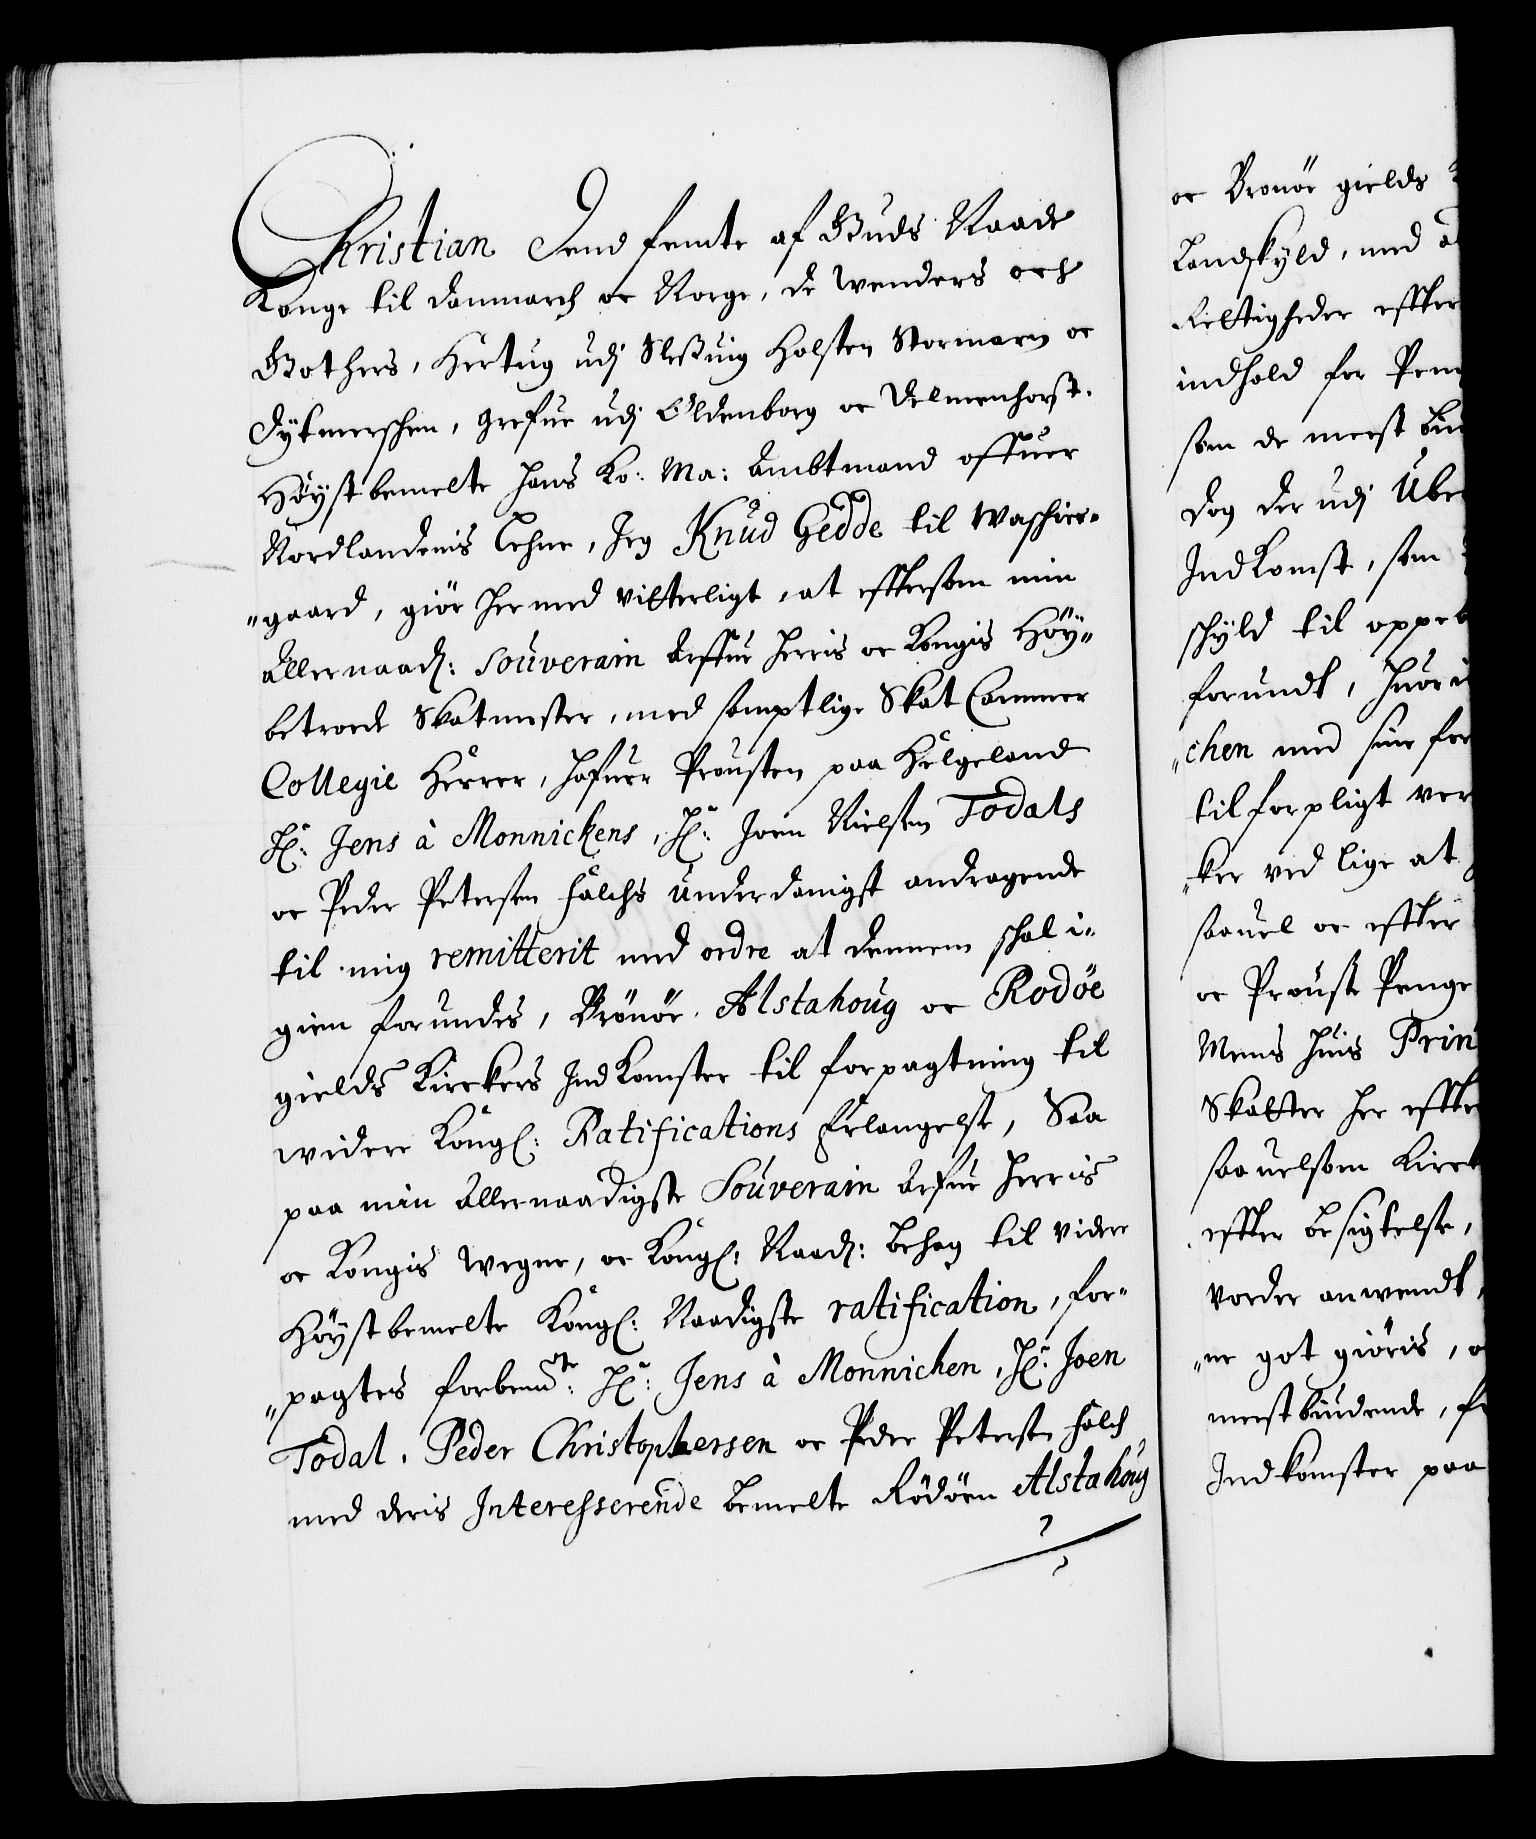 Christian Dend femte af Guds Naade
Konge til Danmarch oc Norge, de Wenders och
Gothers, Hertug udj Sleßuig Holsten Stormarn oc
Dytmerschen, Grefue udj Oldenborg oc Delmenhorst.
Høystbemelte hans Ko: Ma: Ambtmand offuer
Nordlandenis Lehne, Jeg Knud Gedde til Waschier„
„gaard, giør her med vitterligt, at efftersom min
Allernaad: Souverain Arffue Herris oc Kongis Høy„
betroede Skatmester, med samptlige Skat Cammer
Collegie Herrer, hafuer Prousten paa Helgeland
Hr: Jens à Monnickens, Hr: Joen Nielsen Todals
oc Peder Petersen Falchs Underdanigst andragende
til mig remitterit med ordre at dennem schal i„
gien forundes, Brönöe. Alstahoug oc Rodöe
gields Kirckers Indkomster til forpagtning til
widere Kongl: Ratifications Erlangelse, Saa
paa min Allernaadigste Souverain Arfue Herris
oc Kongis wegne, oc Kongl: Naad: behag til videre
Høystbemelte Kongl: Naadigste ratification, for„
„pagtes forbemte: Hr: Jens à Monnichen, Hr: Joen
Todal, Peder Christophersen oc Peder Petersen Falch
med deris Interesserende bemelte Rödöen Alstahoug
oc Bronöe gields
Landskyld, med
Rettigheder effter
indhold for Pen
som de meest
dog der udj
Indkomst, som
schyld til oppe
forundt, huor
„chen med sine for
til forpligt ver
„ker ved lige at
saauel oc effter
oc Prouste Penge
Mens huis Prin
Skatter her effter
saauelsom Kirck
effter besigtelse,
vorder anwendt,
„ne got giöris,
meestbiudende,
Indkomster paa